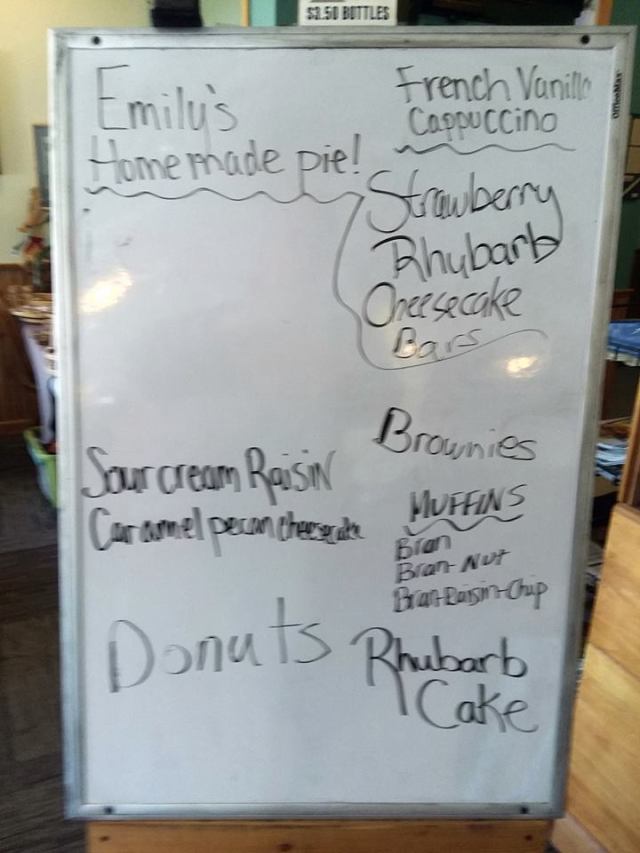 $3.50 BOTTLES
OfficeMax
Emily's
Homemade pie!
Sour cream Raisin
Caramel pecan cheesecake
Donuts
French Vanilla
Cappuccino
Strawberry
Rhubarb
Cheesecake
Bars
Brownies
MUFFINS
Bran
Bran-Nut
Bran-Raisin-Chip
Rhubarb
Cake